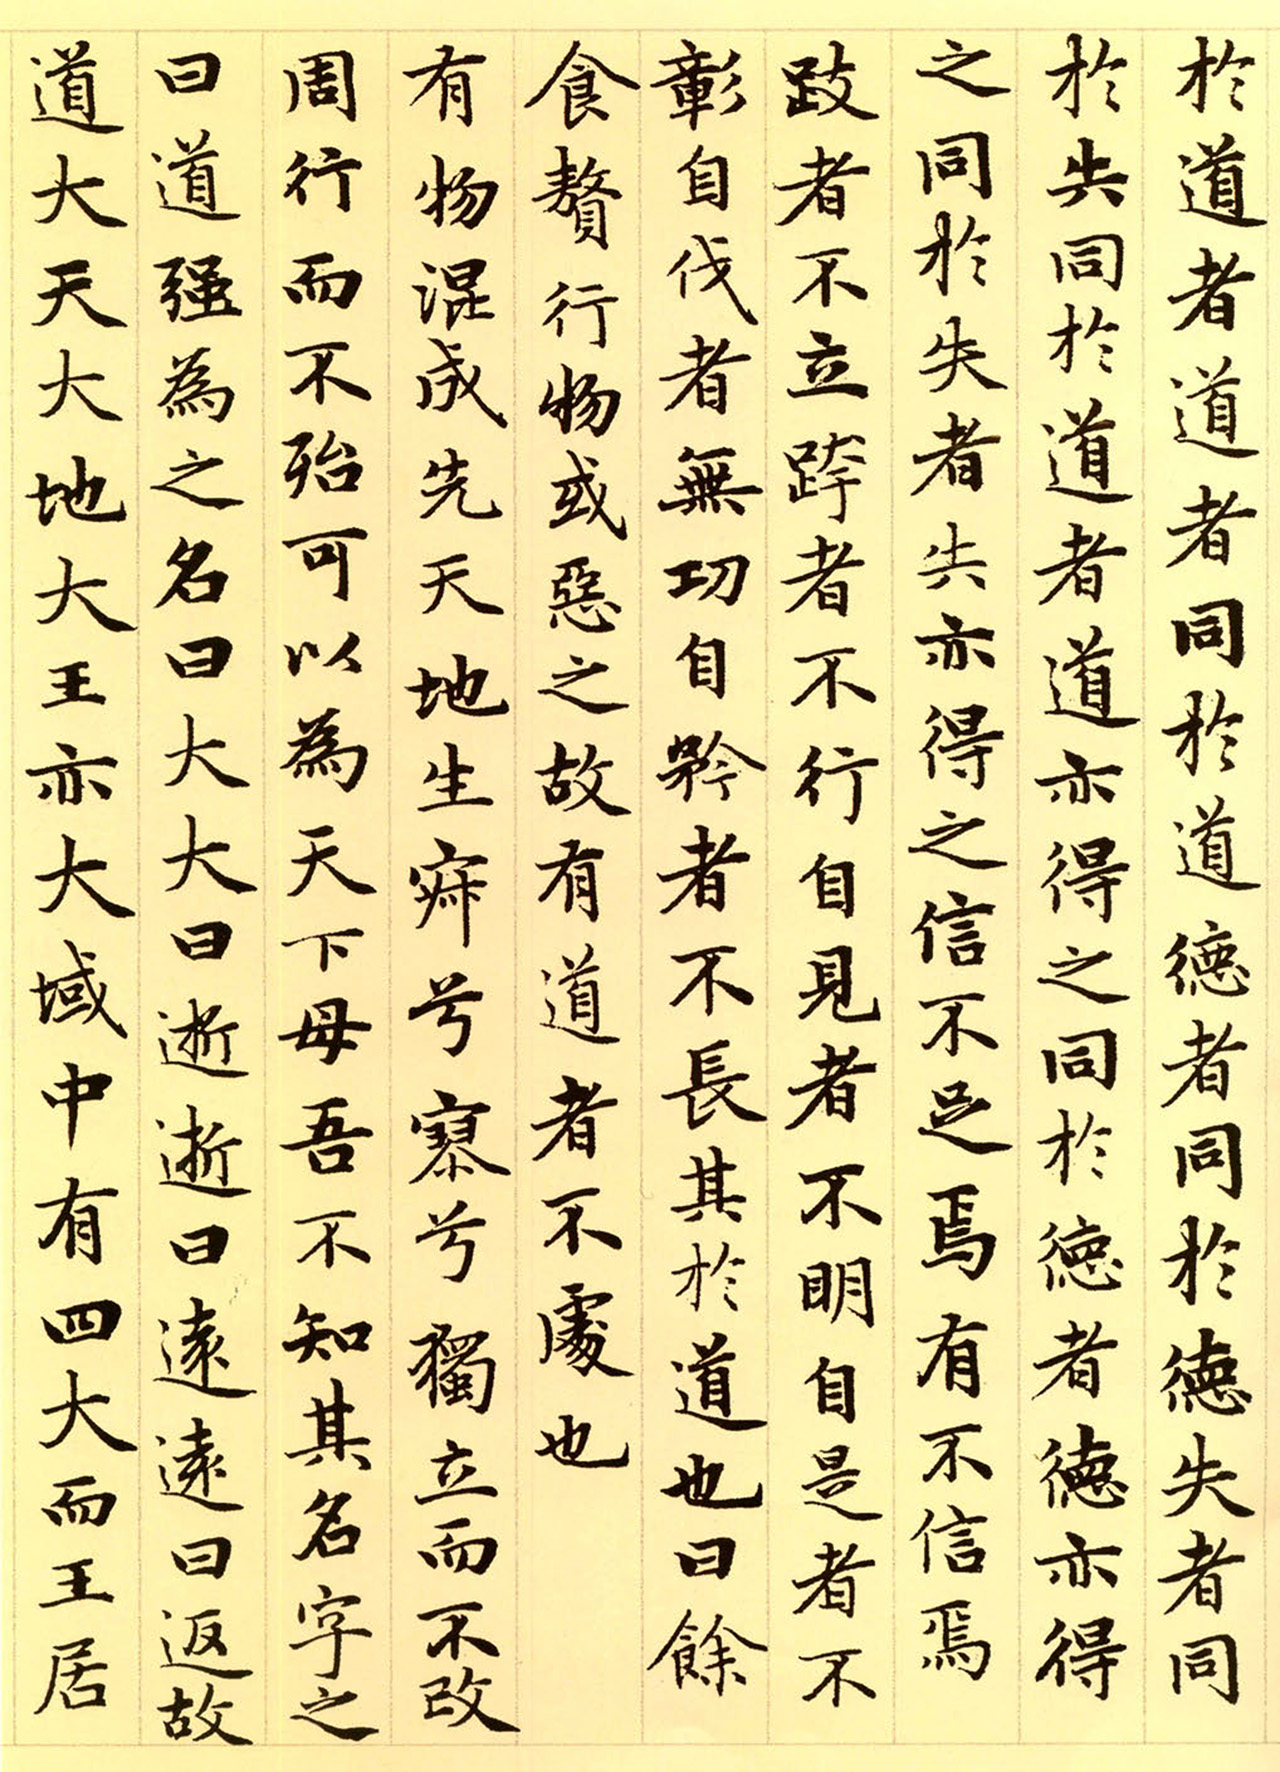 於道者道者同於道德者同於德失者同
於失同於道者道亦得之同於德者德亦得
之同於失者失亦得之信不足焉有不信焉
跂者不立跨者不行自見者不明自是者不
彰自伐者無功自矜者不長其於道也曰餘
食贅行物或惡之故有道者不處也
有物混成先天地生寂兮寥兮獨立而不改
周行而不殆可以為天下母吾不知其名字之
曰道强為之名曰大大曰逝逝曰遠遠曰返故
道大天大地大王亦大域中有四大而王居